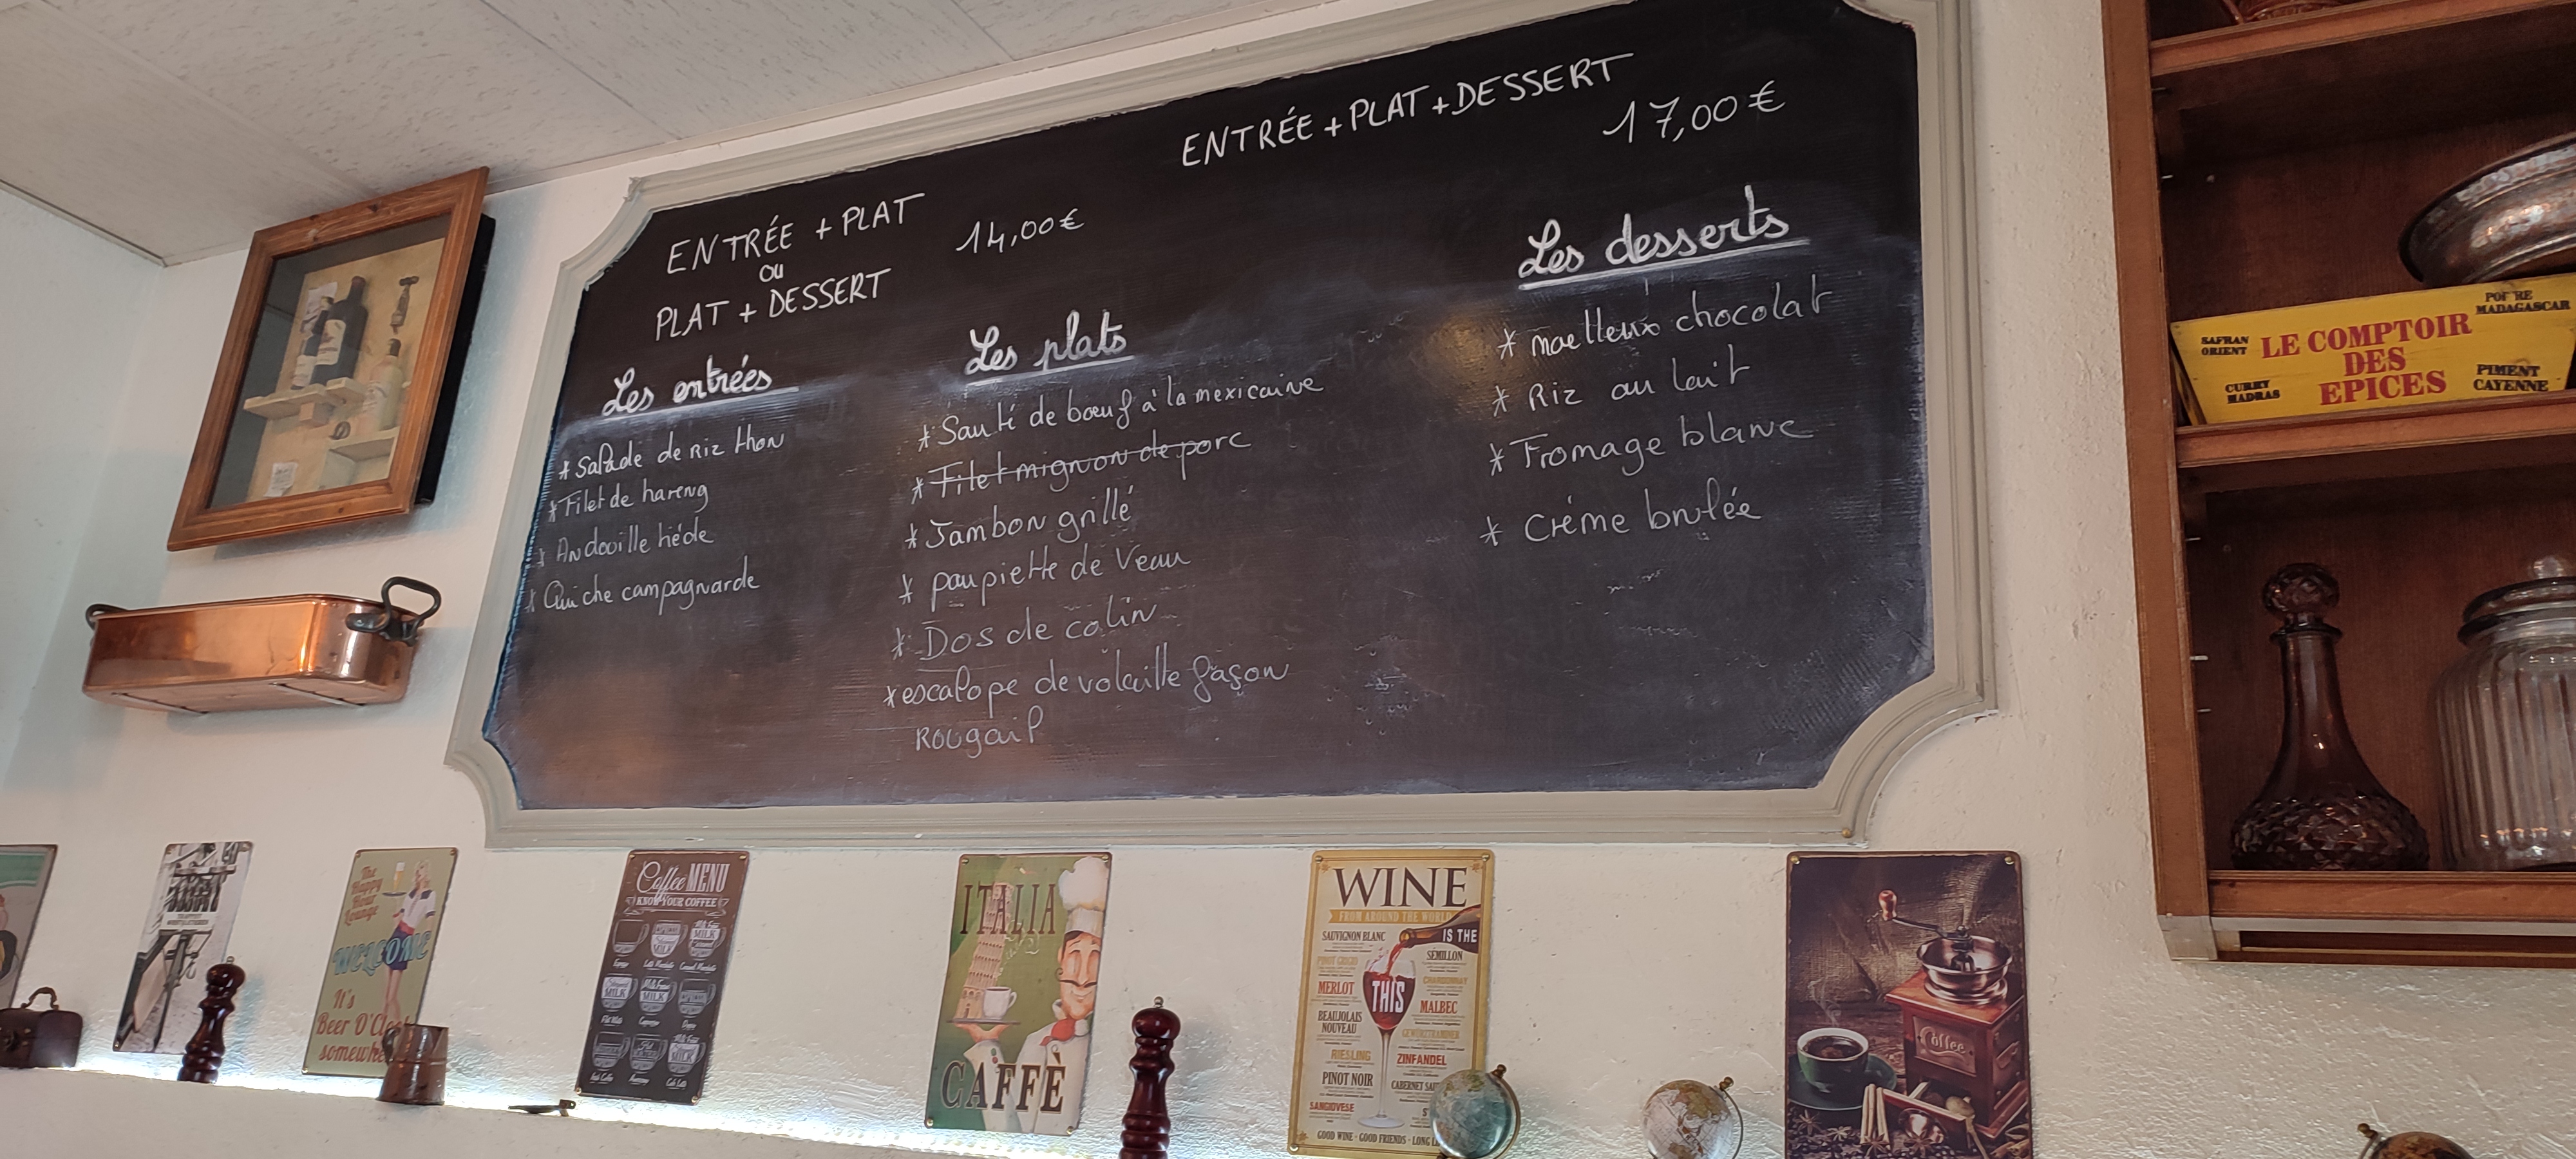 ENTRÉE + PLAT + DESSERT
17,00 €
ENTRÉE + PLAT
ou
PLAT + DESSERT
14,00 €
Les entrées
* Salade de Riz thon
* Filet de hareng
* Andouille tiéde
* Quiche campagnarde
Les plats
* Sauté de bœuf à la mexicaine
* Filet mignon de porc
* Jambon grillé
* paupiette de Veau
* Dos de colin
* escalope de volaille façon
Rougail
Les desserts
* moelleux chocolat
* Riz au lait
* Fromage blanc
* Créme brulée
SAFRAN
ORIENT
LE COMPTOIR
DES
EPICES
MADAGASCAR
CURRY
MADRAS
PIMENT
CAYENNE
The
Happy
Hour
Lounge
WELCOME
It's
Beer O'Cl
somewhe
Coffee MENU
KNOW YOUR COFFEE
ITALIA
CAFFÈ
WINE
FROM AROUND THE WORLD
IS THE
THIS
SAUVIGNON BLANC
PINOT GRIGIO
MERLOT
BEAUJOLAIS
NOUVEAU
RIESLING
PINOT NOIR
SANGIOVESE
SEMILLON
CHARDONNAY
MALBEC
GEWURZTRAMINER
ZINFANDEL
CABERNET
GOOD WINE · GOOD FRIENDS · LONG
Coffee